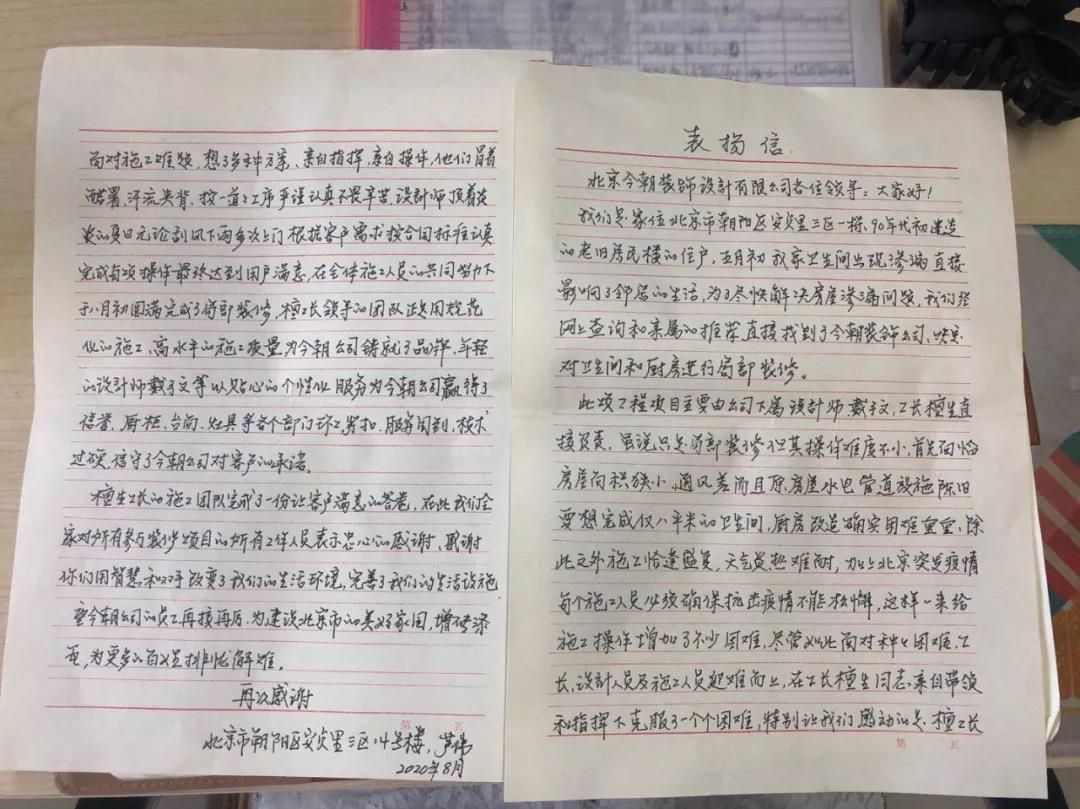 表扬信
北京今朝装饰设计有限公司各位领导：大家好！
我们是家位北京市朝阳区安贞里三区一栋、90年代初建造
的老旧居民楼的住户，五月初我家卫生间出现渗漏直接
影响了邻居的生活，为了尽快解决房屋渗漏问题，我们经
网上查询和亲属的推荐直接找到了今朝装饰公司、决定
对卫生间和厨房进行局部装修。
此项工程项目主要由公司下属设计师戴子文，工长檀生直
接负责，虽说只是局部装修但其操作难度不小，首先面临
房屋面积狭小、通风差而且原房屋水电管道设施陈旧
要想完成仅八平米的卫生间，厨房改造确实困难重重，除
此之外施工恰逢盛夏，天气炎热难耐，加上北京突发疫情
每个施工人员必须确保抗击疫情不能松懈，这样一来给
施工操作增加了不少困难，尽管如此面对种种困难，工
长，设计人员及施工人员迎难而上，在工长檀生同志亲自带领
和指挥下克服了一个个困难，特别让我们感动的是檀工长
面对施工难题，想了多种方案、亲自指挥，亲自操作，他们冒着
酷署、汗流夹背、按一道道工序严谨认真不畏辛苦，设计师顶着炎
炎的夏日无论刮风下雨多次上门根据客户需求按合同标准认真
完成每项操作最终达到用户满意，在全体施工人员的共同努力下
于八月初圆满完成了局部装修，檀工长领导的团队正用规范
化的施工、高水平的施工质量为今朝公司铸就了品牌，年轻
的设计师戴子文等以贴心的个性化服务为今朝公司赢得了
信誉，厨柜、台面、灶具等各个部门环环紧扣、服务周到，技术
过硬，信守了今朝公司对客户的承诺。
檀生工长的施工团队完成了一份让客户满意的答卷，在此我们全
家对所有参与装修项目的所有工作人员表示忠心的感谢，感谢
你们用智慧和双手改变了我们的生活环境，完善了我们的生活设施
望今朝公司的员工再接再厉，为建设北京市的美好家园，增砖添
瓦，为更多的百姓排忧解难。
再次感谢
北京市朝阳区安贞里三区14号楼，芦伟
2020年8月
第 页
第 页